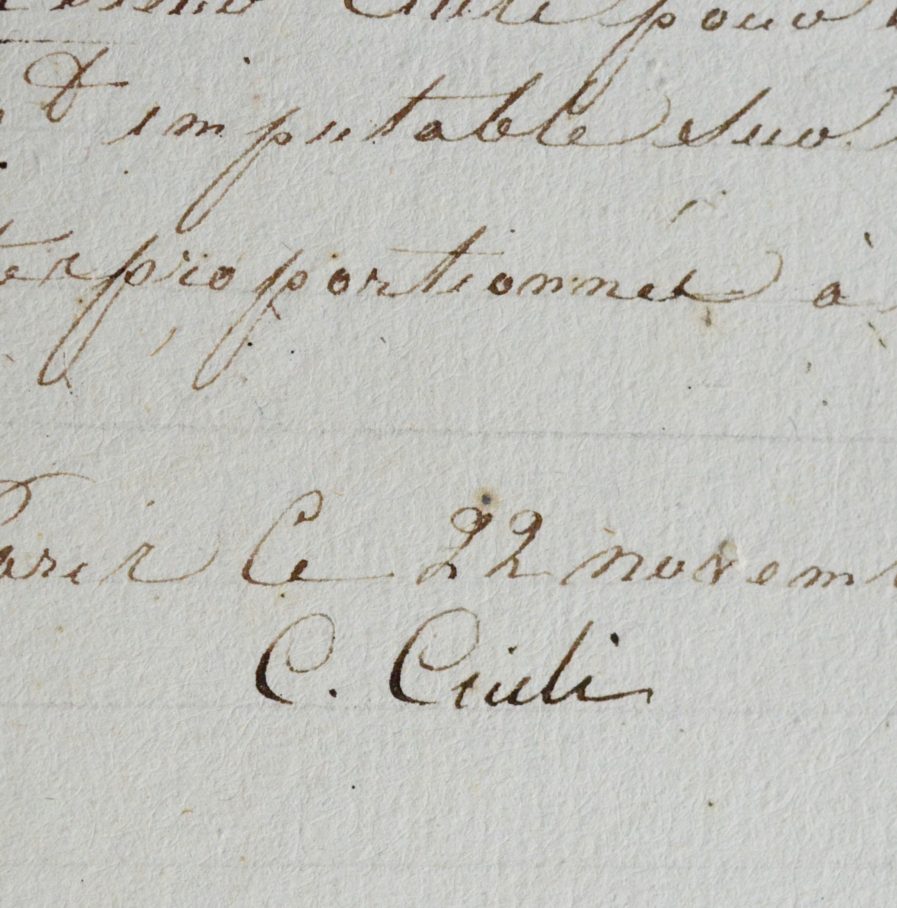 pour
imputable sur
proportionnés à
Paris Ce 22 novem
C. Ciuli